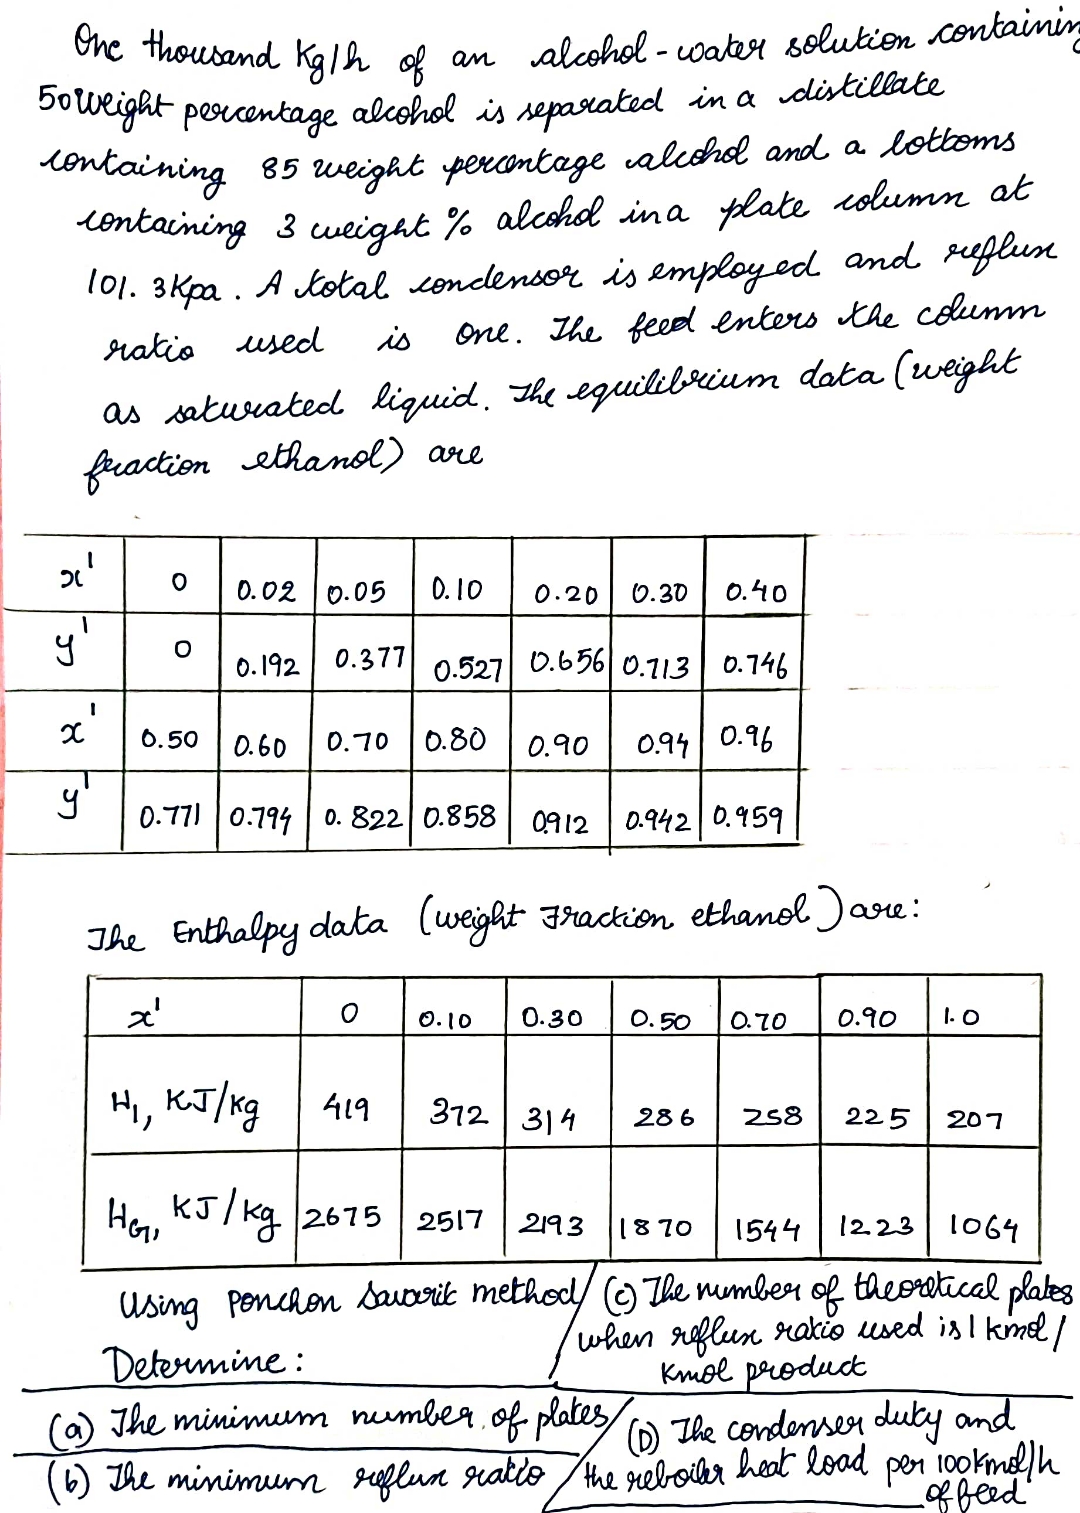 One thousand Kg/h of an alcohol-water solution containing
50 weight percentage alcohol is separated in a distillate
containing 85 weight percentage alcohol and a bottoms
containing 3 weight % alcohol in a plate column at
101. 3Kpa. A total condensor is employed and reflux
ratio used is one. The feed enters the column
as saturated liquid. The equilibrium data (weight
fraction ethanol) are
x' 0 0.02 0.05 0.10 0.20 0.30 0.40
y' 0 0.192 0.377 0.527 0.656 0.713 0.746
x' 0.50 0.60 0.70 0.80 0.90 0.94 0.96
y' 0.771 0.794 0.822 0.858 0912 0.942 0.959
The Enthalpy data (weight Fraction ethanol) are:
x' 0 0.10 0.30 0.50 0.70 0.90 1.0
H1, KJ/Kg 419 372 314 286 258 225 207
HG, KJ/kg 2675 2517 2193 1870 1544 1223 1064
Using Ponchon Savarit method
Determine:
(a) The minimum number of plates
(b) The minimum reflux ratio
(c) The number of theoretical plates
when reflux ratio used is 1 kmol/
Kmol product
(D) The condenser duty and
the reboiler heat load per 100kmol/h
of feed